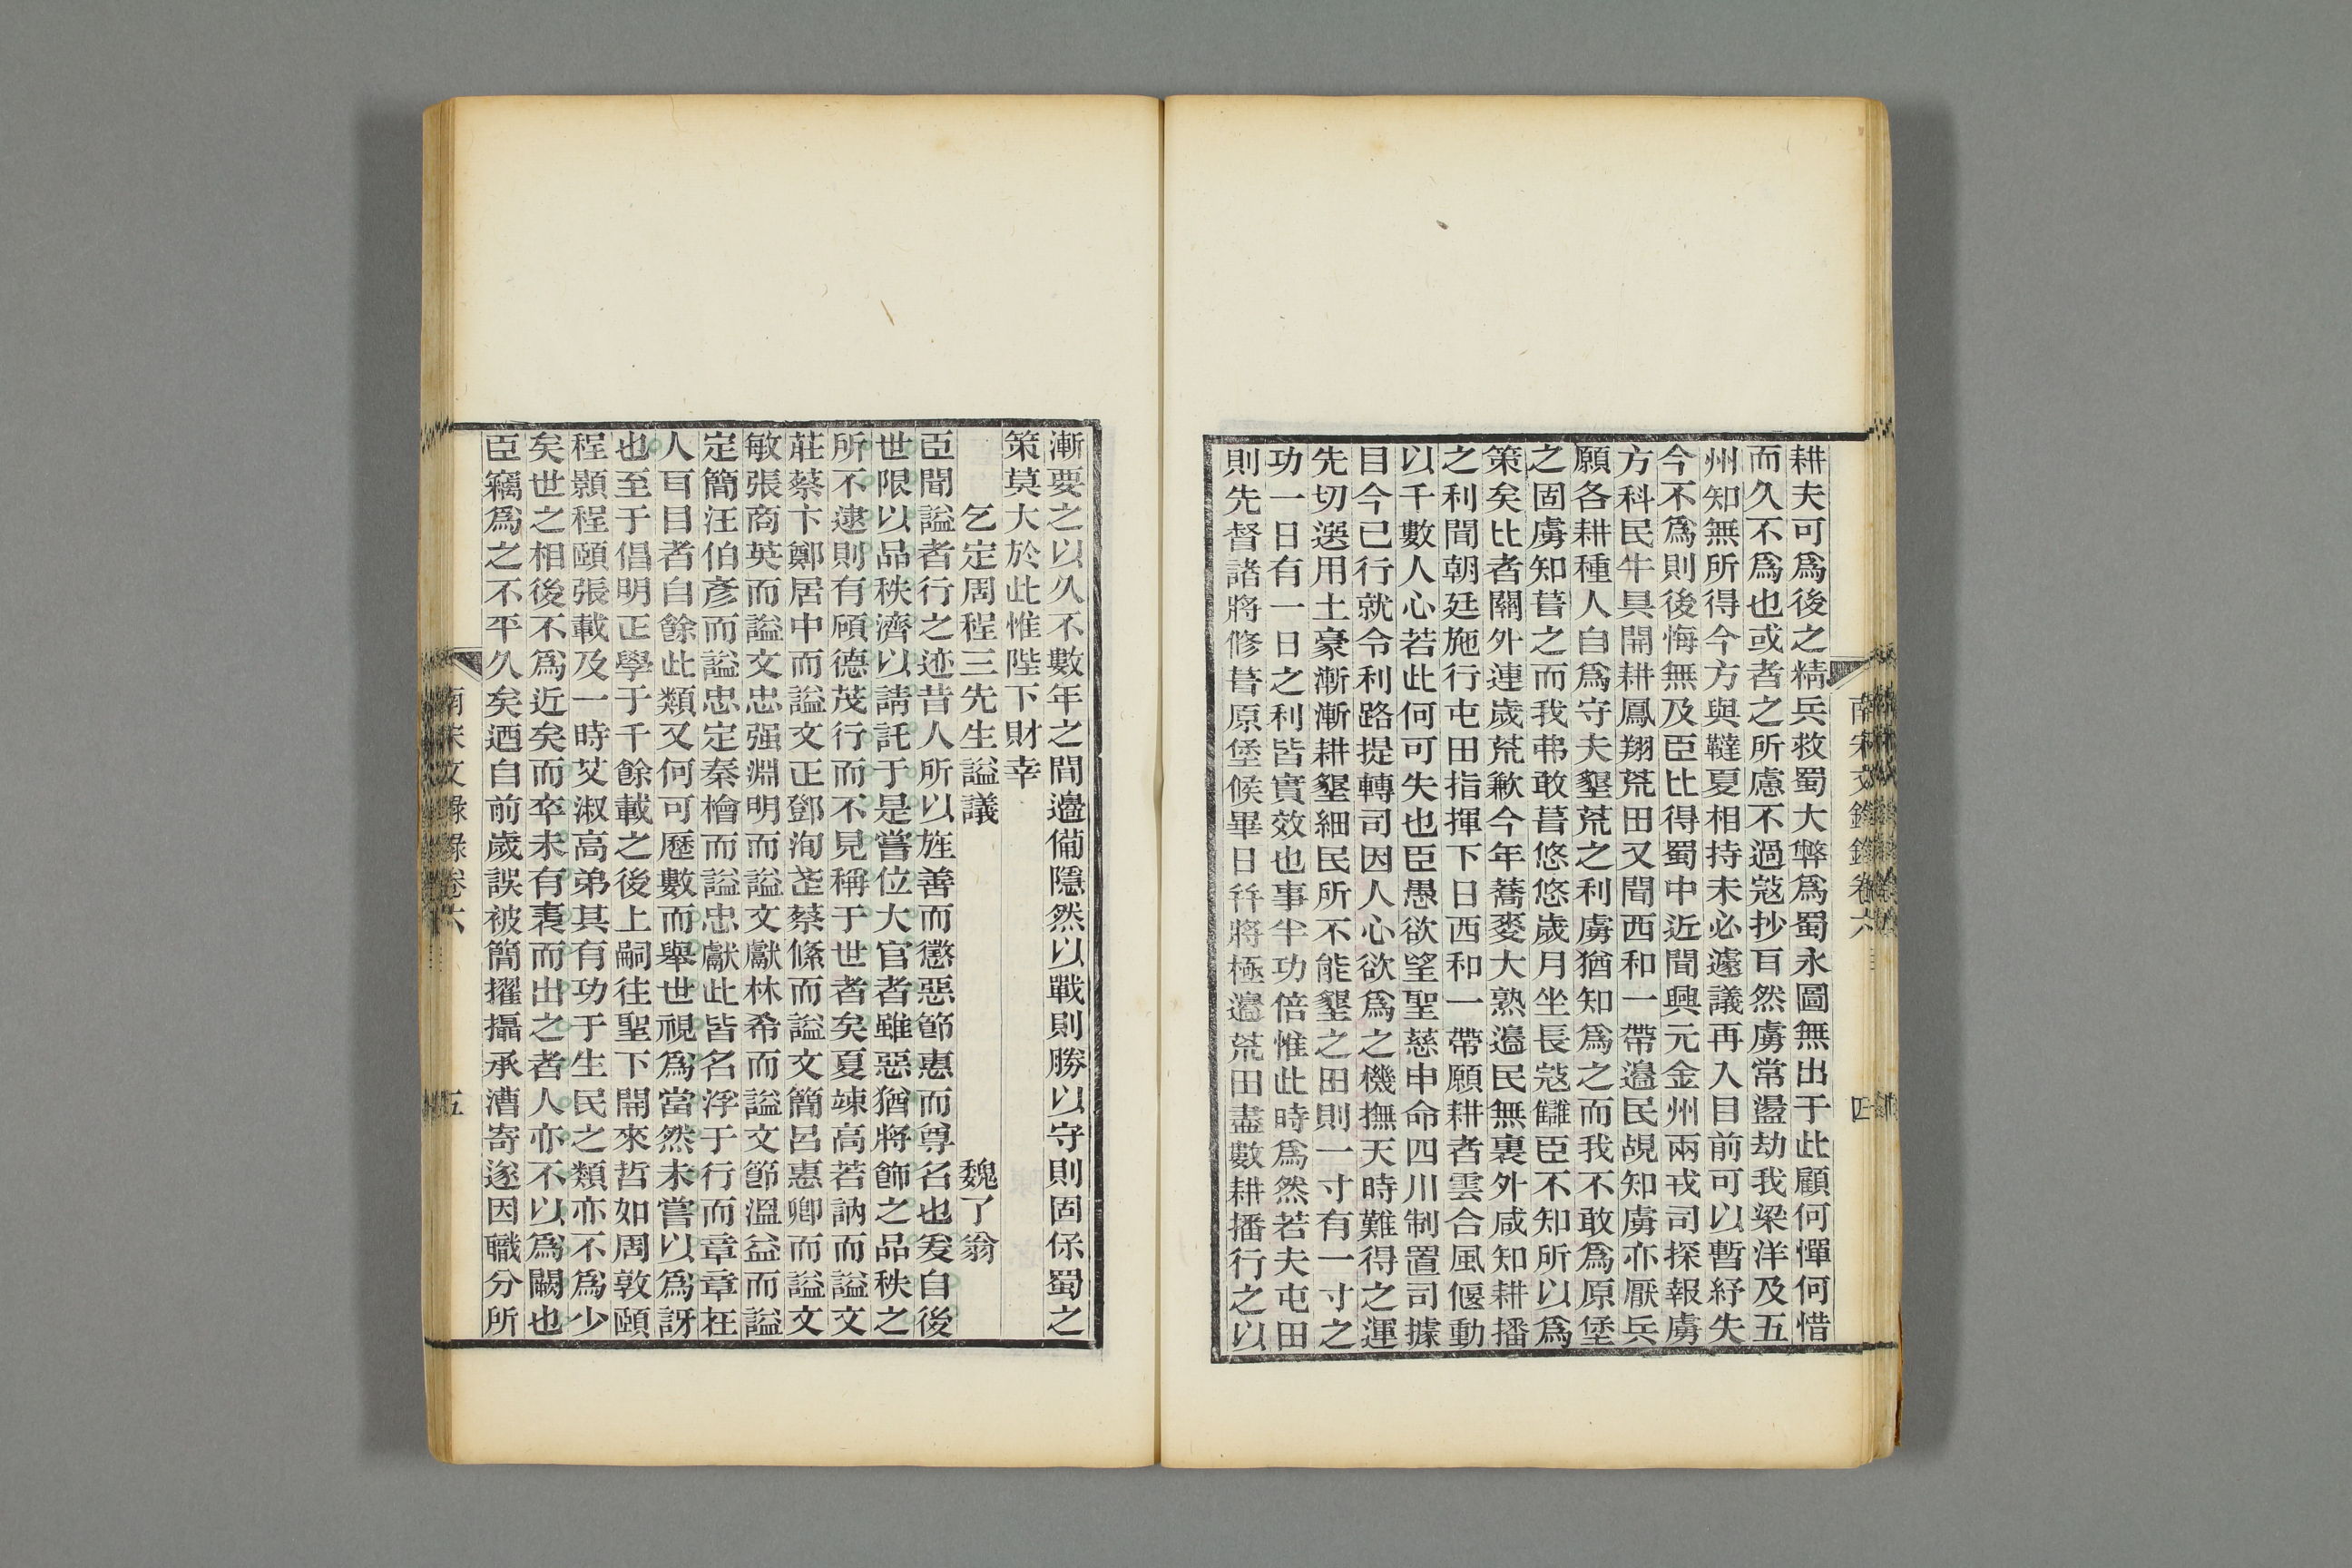 南宋文錄錄卷六
四
耕夫可爲後之精兵救蜀大弊爲蜀永圖無出于此顧何憚何惜
而久不爲也或者之所慮不過寇抄耳然虜常盪劫我梁洋及五
州知無所得今方與韃夏相持未必遽議再入目前可以暫紓失
今不爲則後悔無及臣比得蜀中近聞興元金州兩戎司探報虜
方科民牛具開耕鳳翔荒田又聞西和一帶邊民覘知虜亦厭兵
願各耕種人自爲守夫墾荒之利虜猶知爲之而我不敢爲原堡
之固虜知葺之而我弗敢葺悠悠歲月坐長寇讎臣不知所以爲
策矣比者關外連歲荒歉今年蕎麥大熟邊民無裏外咸知耕播
之利聞朝廷施行屯田指揮下日西和一帶願耕者雲合風偃動
以千數人心若此何可失也臣愚欲望聖慈申命四川制置司據
目今已行就令利路提轉司因人心欲爲之機撫天時難得之運
先切選用土豪漸漸耕墾細民所不能墾之田則一寸有一寸之
功一日有一日之利皆實效也事半功倍惟此時爲然若夫屯田
則先督諸將修葺原堡候畢日幷將極邊荒田盡數耕播行之以
漸要之以久不數年之間邊備隱然以戰則勝以守則固保蜀之
策莫大於此惟陛下財幸
乞定周程三先生謚議 魏了翁
臣聞謚者行之迹昔人所以旌善而懲惡節惠而尊名也爰自後
世限以品秩濟以請託于是嘗位大官者雖惡猶將飾之品秩之
所不逮則有碩德茂行而不見稱于世者矣夏竦高若訥而謚文
莊蔡卞鄭居中而謚文正鄧洵武蔡絛而謚文簡呂惠卿而謚文
敏張商英而謚文忠强淵明而謚文獻林希而謚文節溫益而謚
定簡汪伯彥而謚忠定秦檜而謚忠獻此皆名浮于行而章章在
人耳目者自餘此類又何可歷數而舉世視爲當然未嘗以爲訝
也至于倡明正學于千餘載之後上嗣往聖下開來哲如周敦頤
程顥程頤張載及一時艾淑高弟其有功于生民之類亦不爲少
矣世之相後不爲近矣而卒未有表而出之者人亦不以爲闕也
臣竊爲之不平久矣迺自前歲誤被簡擢攝承漕寄遂因職分所
南宋文錄錄卷六
五